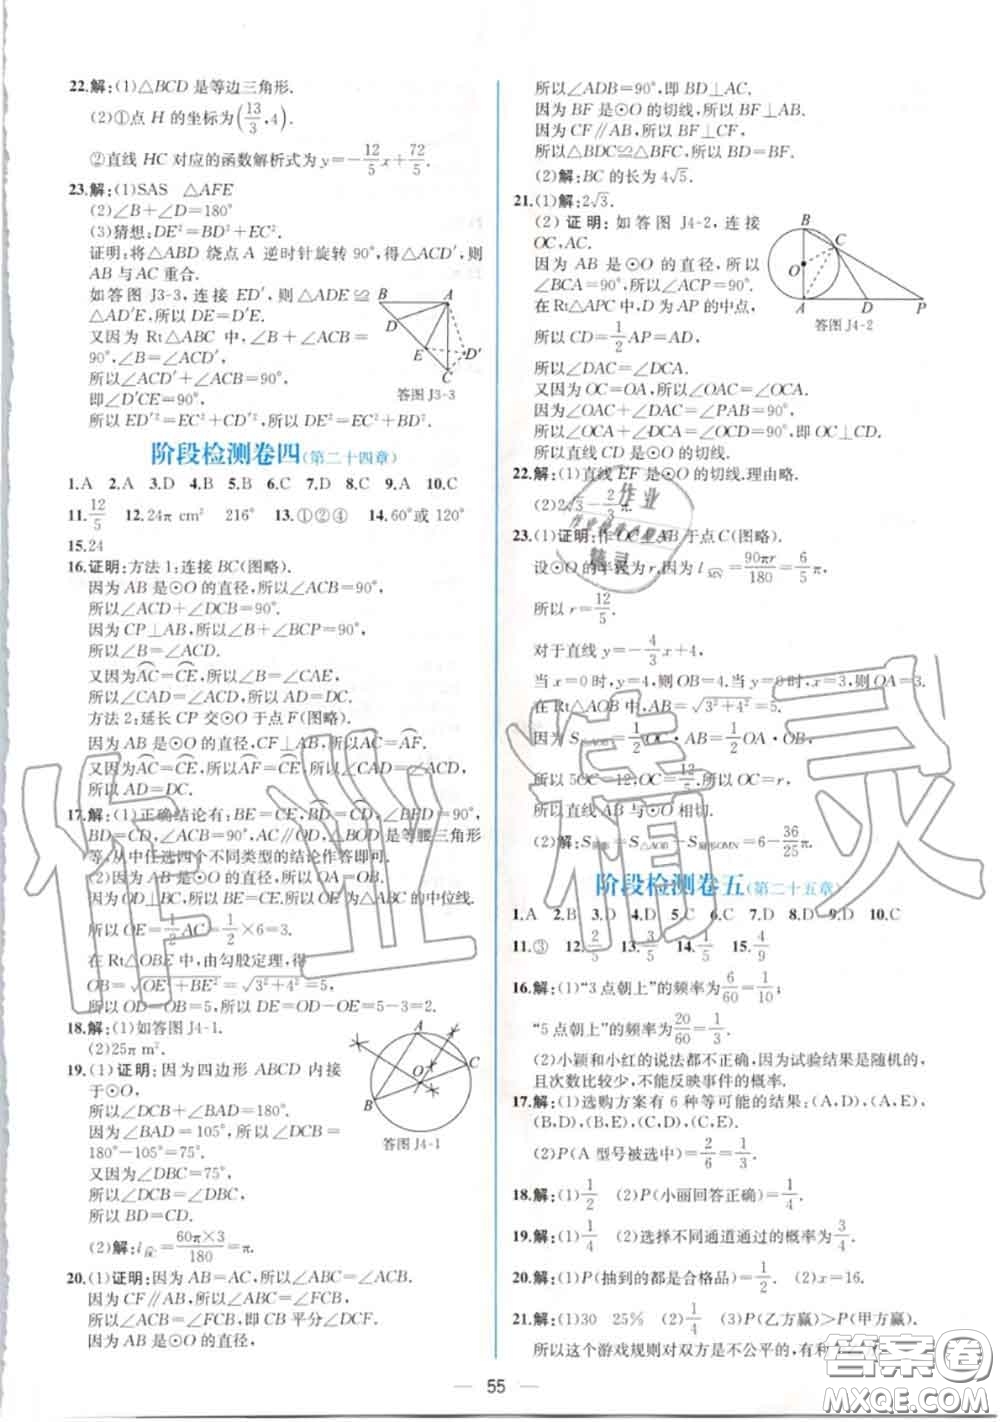 22.解:(1)△BCD 是等边三角形.
(2)①点 H 的坐标为(13/3,4).
②直线 HC 对应的函数解析式为 y=-12/5x+72/5.
23.解:(1)SAS △AFE
(2)∠B+∠D=180°
(3)猜想:DE²=BD²+EC².
证明:将△ABD 绕点 A 逆时针旋转 90°,得△ACD′,则
AB 与 AC 重合.
如答图 J3-3,连接 ED′,则△ADE≌
△AD′E,所以 DE=D′E.
又因为 Rt△ABC 中,∠B+∠ACB=
90°,∠B=∠ACD′,
所以∠ACD′+∠ACB=90°,
即∠D′CE=90°,
所以 ED′²=EC²+CD′²,所以 DE²=EC²+BD².
B A D E D′ C
答图 J3-3
阶段检测卷四(第二十四章)
1.A 2.A 3.D 4.B 5.B 6.C 7.D 8.C 9.A 10.C
11.12/5 12.24π cm² 216° 13.①②④ 14.60°或 120°
15.24
16.证明:方法 1:连接 BC(图略).
因为 AB 是⊙O 的直径,所以∠ACB=90°,
所以∠ACD+∠DCB=90°.
因为 CP⊥AB,所以∠B+∠BCP=90°,
所以∠B=∠ACD.
又因为AC=CE,所以∠B=∠CAE,
所以∠CAD=∠ACD,所以 AD=DC.
方法 2:延长 CP 交⊙O 于点 F(图略).
因为 AB 是⊙O 的直径,CF⊥AB,所以AC=AF.
又因为AC=CE,所以AF=CE,所以∠ACF=∠CAE,
所以 AD=DC.
17.解:(1)正确结论有:BE=CE,BD=CD,∠BED=90°,
BD=CD,∠ACB=90°,AC∥OD,△BOD 是等腰三角形
等,从中任选四个不同类型的结论作答即可.
因为 OD⊥BC,所以 BE=CE.所以 OE 为△ABC 的中位线.
所以 OE=1/2AC=1/2×6=3.
在 Rt△OBE 中,由勾股定理,得
OB=√OE²+BE²=√3²+4²=5,
所以 OD=OB=5,所以 DE=OD-OE=5-3=2.
18.解:(1)如答图 J4-1.
(2)25π m².
A C O B
答图 J4-1
19.(1)证明:因为四边形 ABCD 内接
于⊙O,
所以∠DCB+∠BAD=180°.
因为∠BAD=105°,所以∠DCB=
180°-105°=75°.
又因为∠DBC=75°,
所以∠DCB=∠DBC,
所以 BD=CD.
(2)解:lBC=60π×3/180=π.
20.(1)证明:因为 AB=AC,所以∠ABC=∠ACB.
因为 CF∥AB,所以∠ABC=∠FCB,
所以∠ACB=∠FCB,即 CB 平分∠DCF.
因为 AB 是⊙O 的直径,
所以∠ADB=90°,即 BD⊥AC.
因为 BF 是⊙O 的切线,所以 BF⊥AB.
因为 CF∥AB,所以 BF⊥CF,
所以△BDC≌△BFC,所以 BD=BF.
(2)解:BC 的长为 4√5.
21.(1)解:2√3.
(2) 证明:如答图 J4-2,连接
OC,AC.
因为 AB 是⊙O 的直径,所以
∠BCA=90°,所以∠ACP=90°.
在 Rt△APC 中,D 为 AP 的中点,
所以 CD=1/2AP=AD.
所以∠DAC=∠DCA.
又因为 OC=OA,所以∠OAC=∠OCA.
因为∠OAC+∠DAC=∠PAB=90°,
所以∠OCA+∠DCA=∠OCD=90°.
所以直线 CD 是⊙O 的切线.
B C O A D P
答图 J4-2
22.解:(1)直线 EF 是⊙O 的切线.理由略.
(2)2√3-2/3π.
23.(1)证明:作 OC⊥AB 于点 C(图略).
设⊙O 的半径为 r,因为 lMN=90πr/180=6/5π,
所以 r=12/5.
对于直线 y=-4/3x+4,
当 x=0 时,y=4,则 OB=4.当 y=0 时,x=3,则 OA=3.
在 Rt△AOB 中,AB=√3²+4²=5.
因为 S△AOB=1/2OC·AB=1/2OA·OB,
所以 5OC=12,OC=12/5,
所以直线 AB 与⊙O 相切.
(2)解:S阴影=S△AOB-S扇形OMN=6-36/25π.
阶段检测卷五(第二十五章)
1.A 2.B 3.D 4.D 5.C 6.C 7.D 8.D 9.D 10.C
11.③ 12.2/5 13.4/5 14.1/5 15.4/9
16.解:(1)“3 点朝上”的频率为6/60=1/10;
“5 点朝上”的频率为20/60=1/3.
(2)小颖和小红的说法都不正确,因为试验结果是随机的,
且次数比较少,不能反映事件的概率.
17.解:(1)选购方案有 6 种等可能的结果:(A,D),(A,E),
(B,D),(B,E),(C,D),(C,E).
(2)P(A 型号被选中)=2/6=1/3.
18.解:(1)1/2 (2)P(小丽回答正确)=1/4.
19.解:(1)1/4 (2)选择不同通道通过的概率为3/4.
20.解:(1)P(抽到的都是合格品)=1/2. (2)x=16.
21.解:(1)30 25% (2)1/4 (3)P(乙方赢)>P(甲方赢),
所以这个游戏规则对双方是不公平的,有利
55
作业精灵
答案圈
MXQE.COM